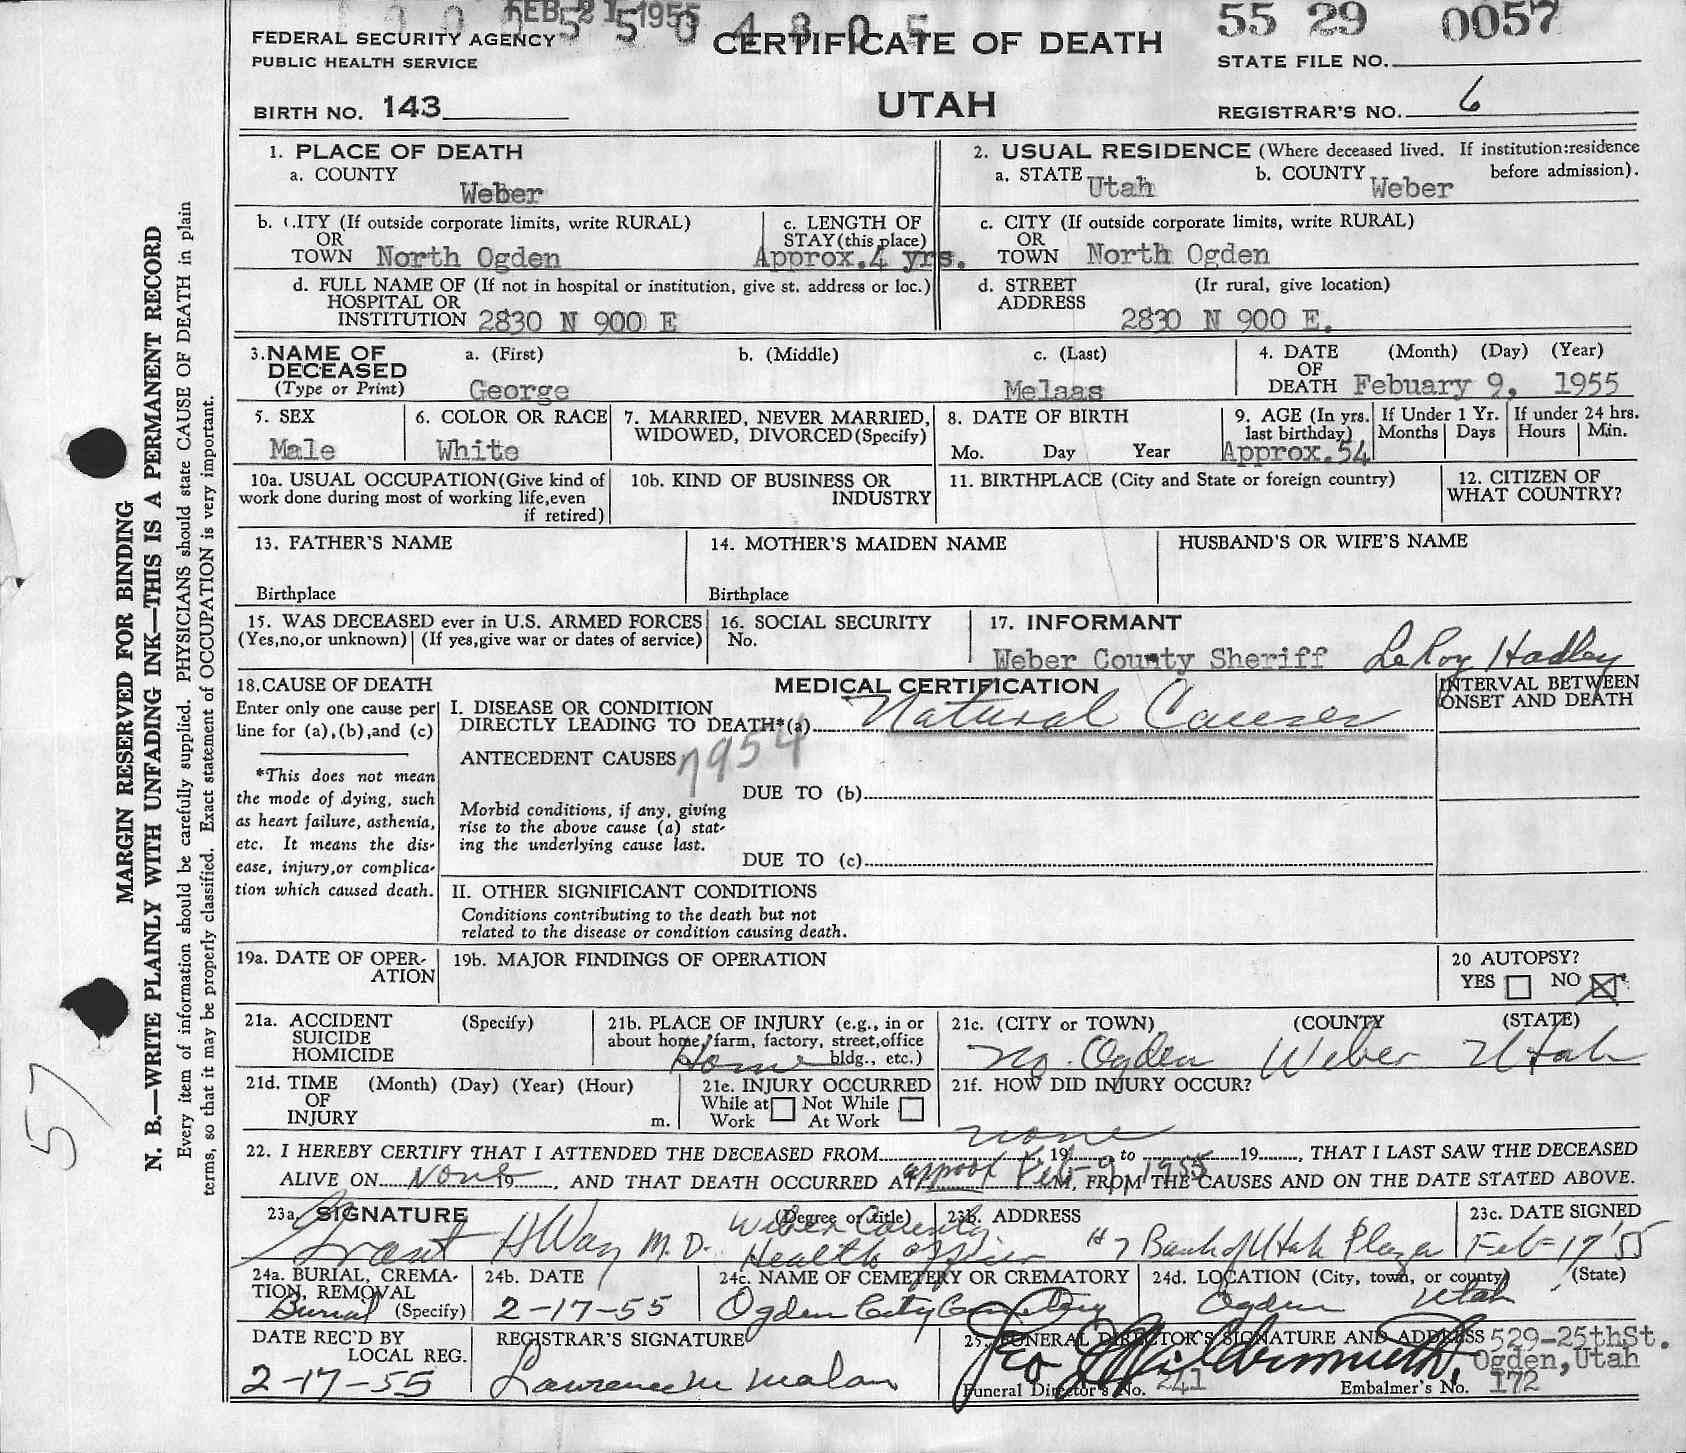 FEB 21 1955
55 04805
55 29 0057
FEDERAL SECURITY AGENCY
PUBLIC HEALTH SERVICE
CERTIFICATE OF DEATH
STATE FILE NO.
BIRTH NO. 143
UTAH
REGISTRAR'S NO. 6
1. PLACE OF DEATH
a. COUNTY
Weber
2. USUAL RESIDENCE (Where deceased lived. If institution:residence
a. STATE Utah b. COUNTY Weber before admission).
b. CITY (If outside corporate limits, write RURAL)
OR
TOWN North Ogden
c. LENGTH OF
STAY (this place)
Approx.4 yrs.
c. CITY (If outside corporate limits, write RURAL)
OR
TOWN North Ogden
d. FULL NAME OF (If not in hospital or institution, give st. address or loc.)
HOSPITAL OR
INSTITUTION 2830 N 900 E
d. STREET (Ir rural, give location)
ADDRESS
2830 N 900 E.
3. NAME OF DECEASED
(Type or Print)
a. (First) b. (Middle) c. (Last)
George Melaas
4. DATE (Month) (Day) (Year)
OF
DEATH Febuary 9, 1955
5. SEX
Male
6. COLOR OR RACE
White
7. MARRIED, NEVER MARRIED,
WIDOWED, DIVORCED (Specify)
8. DATE OF BIRTH
Mo. Day Year
9. AGE (In yrs.
last birthday)
Approx.54
If Under 1 Yr.
Months Days
If under 24 hrs.
Hours Min.
10a. USUAL OCCUPATION (Give kind of
work done during most of working life, even
if retired)
10b. KIND OF BUSINESS OR
INDUSTRY
11. BIRTHPLACE (City and State or foreign country)
12. CITIZEN OF
WHAT COUNTRY?
13. FATHER'S NAME
Birthplace
14. MOTHER'S MAIDEN NAME
Birthplace
HUSBAND'S OR WIFE'S NAME
15. WAS DECEASED ever in U.S. ARMED FORCES
(Yes,no,or unknown) (If yes,give war or dates of service)
16. SOCIAL SECURITY
No.
17. INFORMANT
Weber County Sheriff LeRoy Hadley
18. CAUSE OF DEATH
Enter only one cause per
line for (a),(b),and (c)
*This does not mean
the mode of dying, such
as heart failure, asthenia,
etc. It means the dis-
ease, injury,or complica-
tion which caused death.
MEDICAL CERTIFICATION
INTERVAL BETWEEN
ONSET AND DEATH
I. DISEASE OR CONDITION
DIRECTLY LEADING TO DEATH*(a) Natural Causes
7954
ANTECEDENT CAUSES
Morbid conditions, if any, giving
rise to the above cause (a) stat-
ing the underlying cause last.
DUE TO (b)
DUE TO (c)
II. OTHER SIGNIFICANT CONDITIONS
Conditions contributing to the death but not
related to the disease or condition causing death.
19a. DATE OF OPER-
ATION
19b. MAJOR FINDINGS OF OPERATION
20 AUTOPSY?
YES NO X
21a. ACCIDENT (Specify)
SUICIDE
HOMICIDE
21b. PLACE OF INJURY (e.g., in or
about home, farm, factory, street,office
bldg., etc.)
Home
21c. (CITY or TOWN) (COUNTY (STATE)
No. Ogden Weber Utah
21d. TIME (Month) (Day) (Year) (Hour)
OF
INJURY m.
21e. INJURY OCCURRED
While at Work Not While At Work
21f. HOW DID INJURY OCCUR?
none
22. I HEREBY CERTIFY THAT I ATTENDED THE DECEASED FROM 19 to 19, THAT I LAST SAW THE DECEASED
ALIVE ON None 19, AND THAT DEATH OCCURRED AT approx Feb-9, 1955 M, FROM THE CAUSES AND ON THE DATE STATED ABOVE.
23a. SIGNATURE (Degree or title)
Grant H Way M.D. Weber County Health Officer
23b. ADDRESS
#7 Bank of Utah Plaza
23c. DATE SIGNED
Feb-17'55
24a. BURIAL, CREMA-
TION, REMOVAL
Burial (Specify)
24b. DATE
2-17-55
24c. NAME OF CEMETERY OR CREMATORY
Ogden City Cemetery
24d. LOCATION (City, town, or county) (State)
Ogden Utah
DATE REC'D BY
LOCAL REG.
2-17-55
REGISTRAR'S SIGNATURE
Lawrence M Malan
25. FUNERAL DIRECTOR'S SIGNATURE AND ADDRESS 529-25thSt.
Ogden,Utah
Funeral Director's No. 241 Embalmer's No. 172
MARGIN RESERVED FOR BINDING
N. B.—WRITE PLAINLY WITH UNFADING INK—THIS IS A PERMANENT RECORD
Every item of information should be carefully supplied. PHYSICIANS should state CAUSE OF DEATH in plain
terms, so that it may be properly classified. Exact statement of OCCUPATION is very important.
57